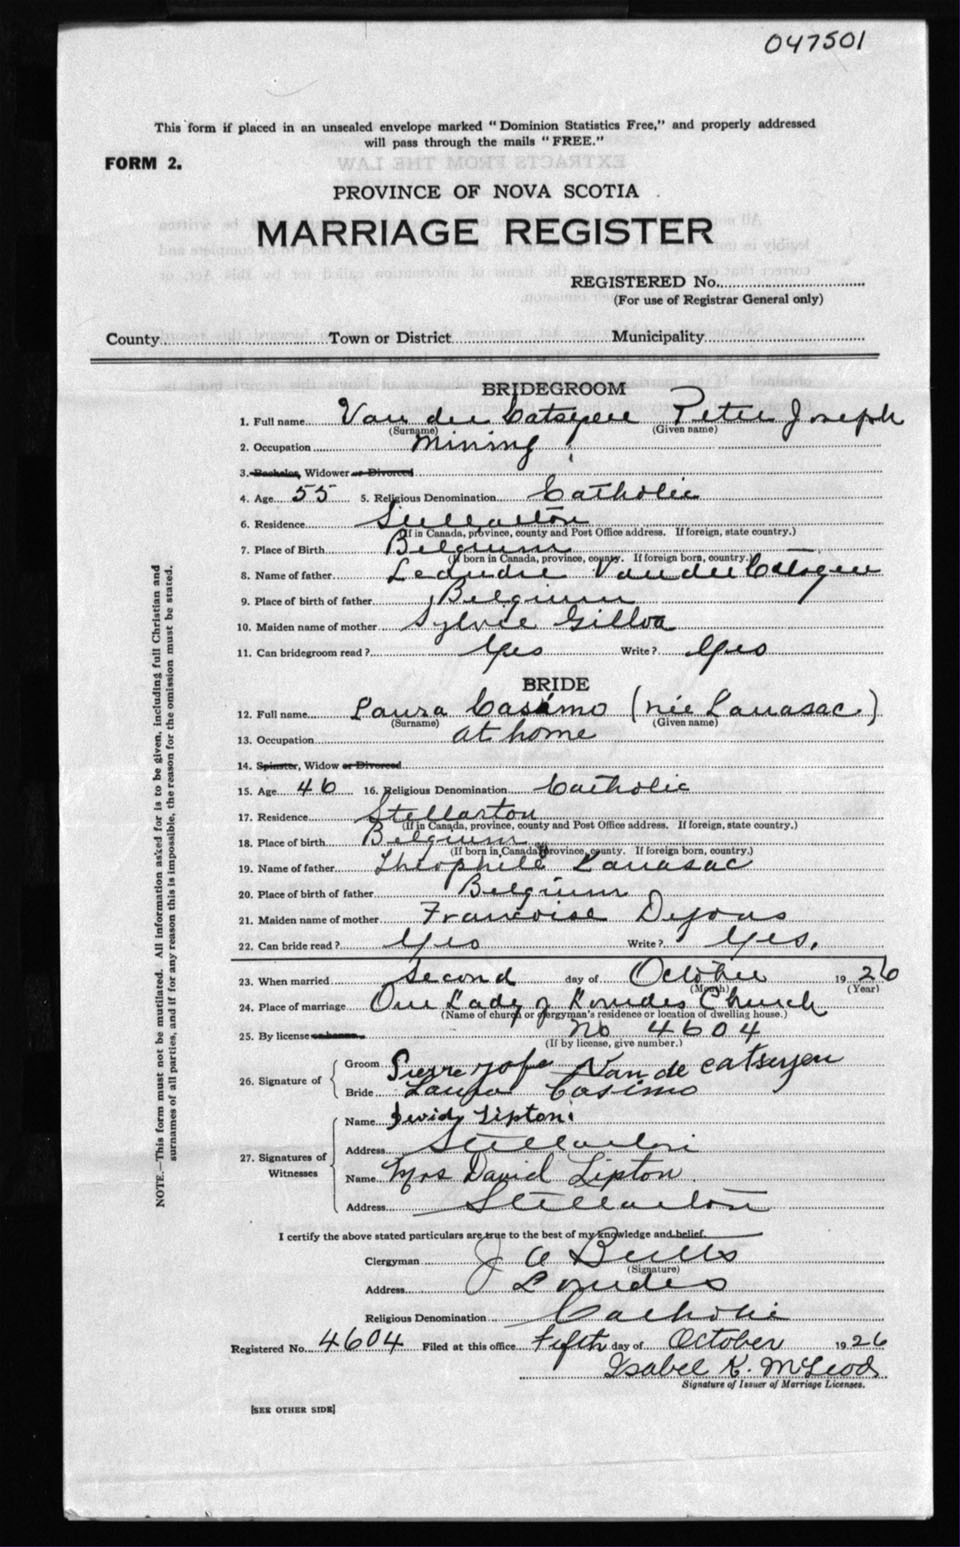 047501
This form if placed in an unsealed envelope marked "Dominion Statistics Free," and properly addressed
will pass through the mails "FREE."
FORM 2.
PROVINCE OF NOVA SCOTIA
MARRIAGE REGISTER
REGISTERED No.
(For use of Registrar General only)
County Town or District Municipality
BRIDEGROOM
1. Full name Van der Catsyen Peter Joseph
(Surname) (Given name)
2. Occupation Mining
3. Bachelor, Widower or Divorced
4. Age 55 5. Religious Denomination Catholic
6. Residence Stellarton
(If in Canada, province, county and Post Office address. If foreign, state country.)
7. Place of Birth Belgium
(If born in Canada, province, county. If foreign born, country.)
8. Name of father Leandre Van der Catsyen
9. Place of birth of father Belgium
10. Maiden name of mother Sylvie Gilloa
11. Can bridegroom read? Yes Write? Yes
BRIDE
12. Full name Laura Casimo (née Lauasac)
(Surname) (Given name)
13. Occupation at home
14. Spinster, Widow or Divorced
15. Age 46 16. Religious Denomination Catholic
17. Residence Stellarton
(If in Canada, province, county and Post Office address. If foreign, state country.)
18. Place of birth Belgium
(If born in Canada, province, county. If foreign born, country.)
19. Name of father Theophile Lauasac
20. Place of birth of father Belgium
21. Maiden name of mother Francoise
22. Can bride read? Yes Write? Yes.
23. When married Second day of October 1926
(Month) (Year)
24. Place of marriage Our Lady of Lourdes Church
(Name of church or clergyman's residence or location of dwelling house.)
25. By license or banns No 4604
(If by license, give number.)
26. Signature of Groom Pierre Van de catseyen
Bride Laura Casimo
27. Signatures of Witnesses Name Lipton
Address Stellarton
Name Mrs David Lipton
Address Stellarton
I certify the above stated particulars are true to the best of my knowledge and belief.
Clergyman J A Butts
(Signature)
Address Lourdes
Religious Denomination Catholic
Registered No. 4604 Filed at this office Fifth day of October 1926
Isabel K. McLeod
Signature of Issuer of Marriage Licenses.
[SEE OTHER SIDE]
NOTE.—This form must not be mutilated. All information asked for is to be given, including full Christian and
surnames of all parties, and if for any reason this is impossible, the reason for the omission must be stated.